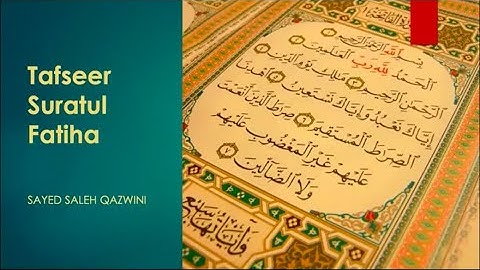 Tafseer
Suratul
Fatiha
SAYED SALEH QAZWINI
بِسْمِ اللَّهِ الرَّحْمَٰنِ الرَّحِيمِ
الْحَمْدُ لِلَّهِ رَبِّ الْعَالَمِينَ
الرَّحْمَٰنِ الرَّحِيمِ ٣ مَالِكِ يَوْمِ الدِّينِ
إِيَّاكَ نَعْبُدُ وَإِيَّاكَ نَسْتَعِينُ ٥ اهْدِنَا
الصِّرَاطَ الْمُسْتَقِيمَ ٦ صِرَاطَ الَّذِينَ أَنْعَمْتَ
عَلَيْهِمْ غَيْرِ الْمَغْضُوبِ عَلَيْهِمْ
وَلَا الضَّالِّينَ ٧
وَآيَاتُهَا سَبْعٌ